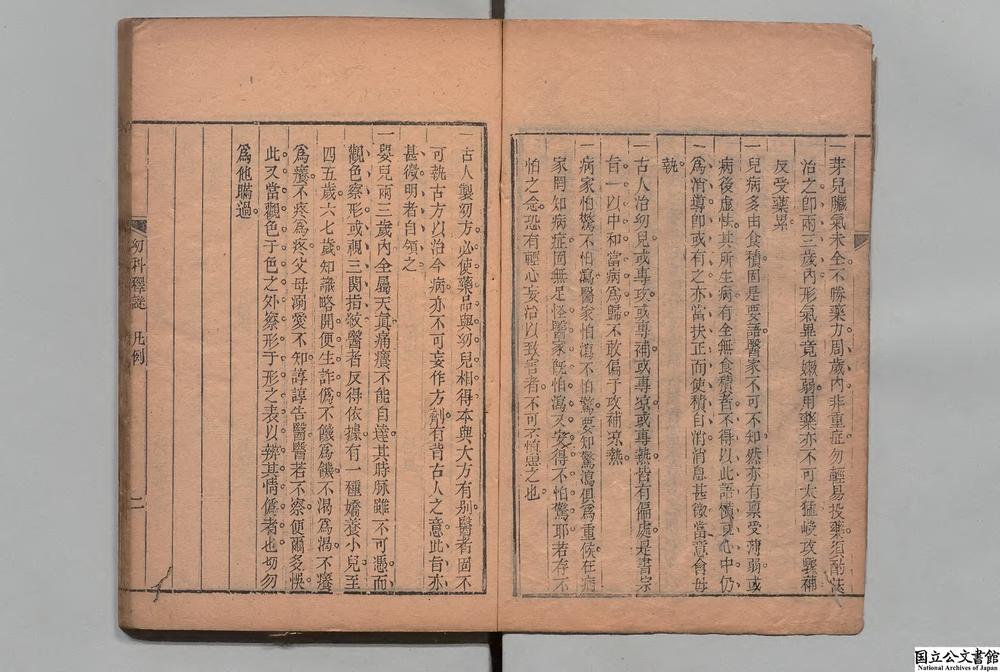 一芽兒臟氣未全不勝藥力周歲內非重症勿輕易投藥須酌法
治之卽兩三歲內形氣畢竟嫩弱用藥亦不可太猛峻攻驟補
反受藥累
一兒病多由食積固是要語醫家不可不知然亦有禀受薄弱或
病後虛怯其所生病有全無食積者不得以此語橫亘心中仍
爲消導卽或有之亦當扶正而使積自消消息甚微當意會毋
執
一古人治幼兒或專攻或專補或專凉或專熱皆有偏處是書宗
旨一以中和當病爲歸不敢偏于攻補凉熱
一病家怕驚不怕瀉醫家怕瀉不怕驚要知驚瀉俱爲重候在病
家罔知病症固無足怪醫家旣怕瀉又安得不怕驚耶若存不
怕之念恐有輕心妄治以致害者不可不愼思之也
一古人製幼方必使藥品與幼兒相得本與大方有别醫者固不
可執古方以治今病亦不可妄作方劑有背古人之意此旨亦
甚微明者自領之
一嬰兒兩三歲內全屬天眞痛癢不能自達其時脉雖不可憑而
觀色察形或視三関指紋醫者反得依據有一種嬌養小兒至
四五歲六七歲知識略開便生詐僞不饑爲饑不渴爲渴不癢
爲癢不疼爲疼父母溺愛不知諄諄告醫醫若不察便爾多悞
此又當觀色于色之外察形于形之表以辨其情僞者也切勿
爲他瞞過
幼科釋謎 凡例 二
国立公文書館
National Archives of Japan